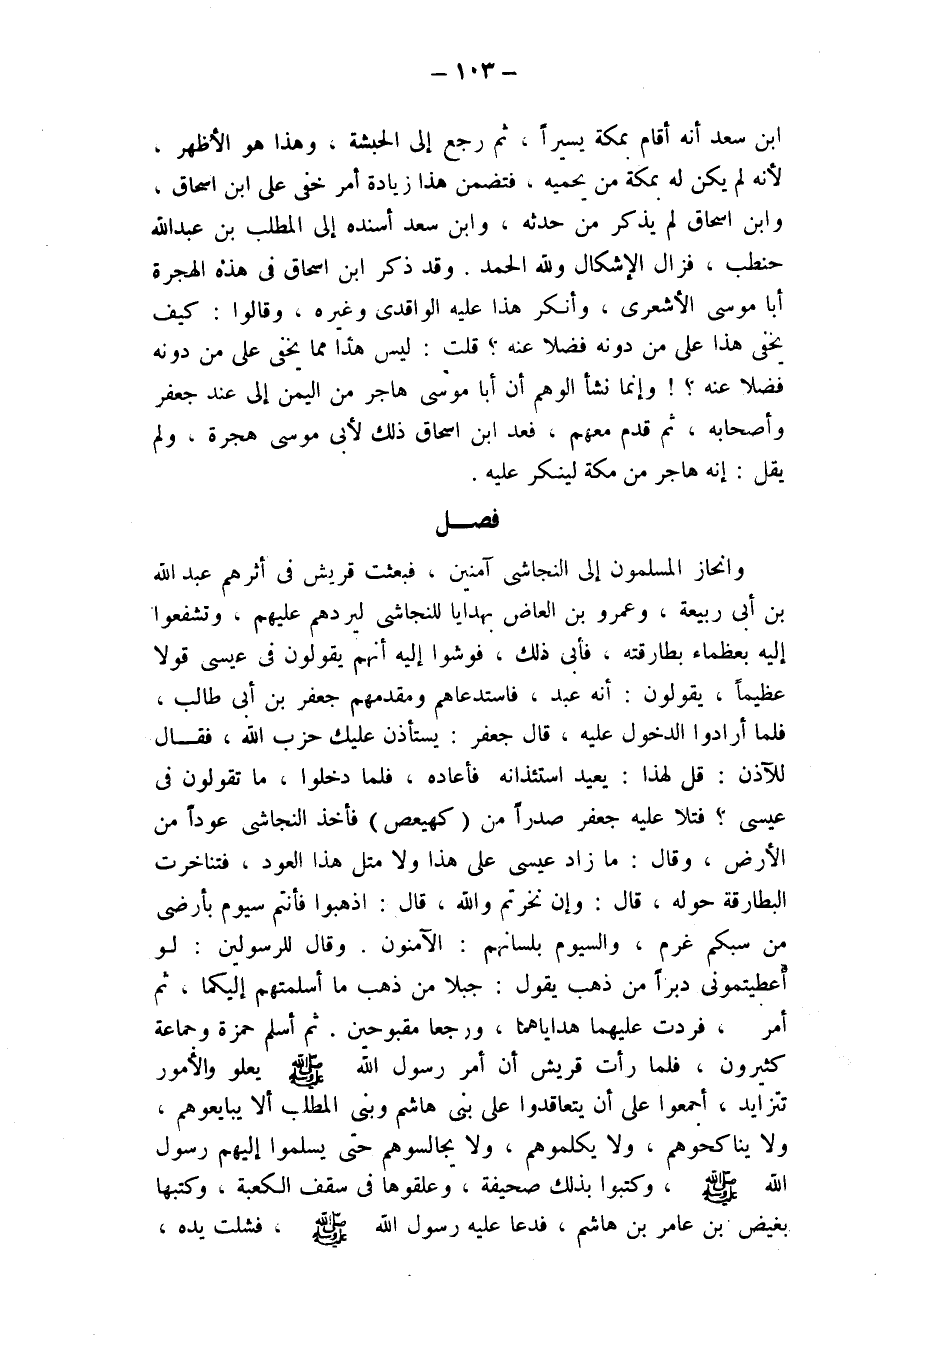 – ١٠٣ –
ابن سعد أنه أقام بمكة يسيراً ، ثم رجع إلى الحبشة ، وهذا هو الأظهر ،
لأنه لم يكن له بمكة من يحميه ، فتضمن هذا زيادة أمر خفى على ابن اسحاق ،
وابن اسحاق لم يذكر من حدثه ، وابن سعد أسنده إلى المطلب بن عبدالله
حنطب ، فزال الإشكال ولله الحمد . وقد ذكر ابن اسحاق فى هذه الهجرة
أبا موسى الأشعرى ، وأنكر هذا عليه الواقدى وغيره ، وقالوا : كيف
يخفى هذا على من دونه فضلا عنه ؟ قلت : ليس هذا مما يخفى على من دونه
فضلا عنه ؟ ! وإنما نشأ الوهم أن أبا موسى هاجر من اليمن إلى عند جعفر
وأصحابه ، ثم قدم معهم ، فعد ابن اسحاق ذلك لأبى موسى هجرة ، ولم
يقل : إنه هاجر من مكة لينكر عليه .
فصـــل
وانحاز المسلمون إلى النجاشى آمنين ، فبعثت قريش فى أثرهم عبد الله
بن أبى ربيعة ، وعمرو بن العاض بهدايا للنجاشى ليردهم عليهم ، وتشفعوا
إليه بعظماء بطارقته ، فأبى ذلك ، فوشوا إليه أنهم يقولون فى عيسى قولا
عظيماً ، يقولون : أنه عبد ، فاستدعاهم ومقدمهم جعفر بن أبى طالب ،
فلما أرادوا الدخول عليه ، قال جعفر : يستأذن عليك حزب الله ، فقـــال
للآذن : قل لهذا : يعيد استئذانه فأعاده ، فلما دخلوا ، ما تقولون فى
عيسى ؟ فتلا عليه جعفر صدراً من ( كهيعص ) فأخذ النجاشى عوداً من
الأرض ، وقال : ما زاد عيسى على هذا ولا مثل هذا العود ، فتناخرت
البطارقة حوله ، قال : وإن نخرتم والله ، قال : اذهبوا فأنتم سيوم بأرضى
من سبكم غرم ، والسيوم بلسانهم : الآمنون . وقال للرسولين : لـو
أعطيتمونى دبراً من ذهب يقول : جبلا من ذهب ما أسلمتهم إليكما ، ثم
أمر ، فردت عليهما هداياهما ، ورجعا مقبوحين . ثم أسلم حمزة وجماعة
كثيرون ، فلما رأت قريش أن أمر رسول الله ﷺ يعلو والأمور
تتزايد ، أجمعوا على أن يتعاقدوا على بنى هاشم وبنى المطلب ألا يبايعوهم ،
ولا يناكحوهم ، ولا يكلموهم ، ولا يجالسوهم حتى يسلموا إليهم رسول
الله ﷺ ، وكتبوا بذلك صحيفة ، وعلقوها فى سقف الكعبة ، وكتبها
بغيض بن عامر بن هاشم ، فدعا عليه رسول الله ﷺ ، فشلت يده ،